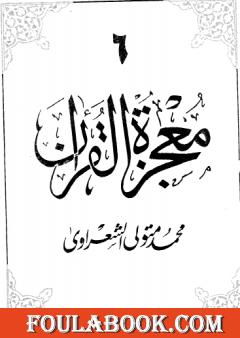 ٦
معجزة القرآن
محمد متولى الشعراوى
FOULABOOK.COM